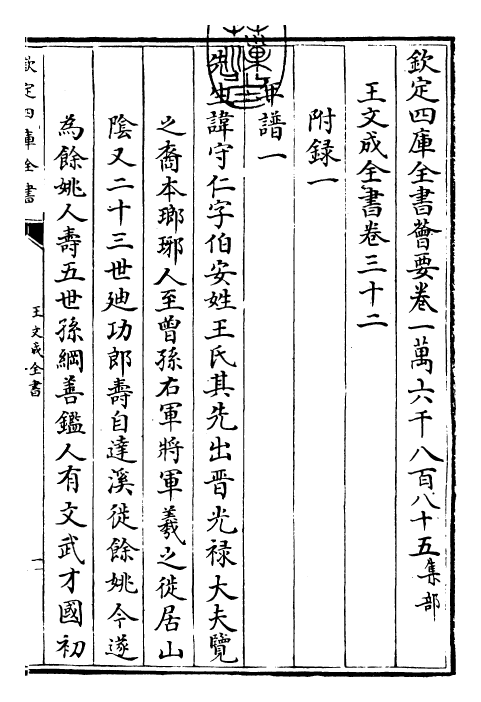 欽定四庫全書薈要卷一萬六千八百八十五集部
王文成全書卷三十二
附録一
年譜一
先生諱守仁字伯安姓王氏其先出晋光禄大夫覽
之裔本瑯琊人至曾孫右軍將軍羲之徙居山
陰又二十三世廸功郎壽自達溪徙餘姚今遂
為餘姚人壽五世孫綱善鑑人有文武才國初
欽定四庫全書
王文成全書
一